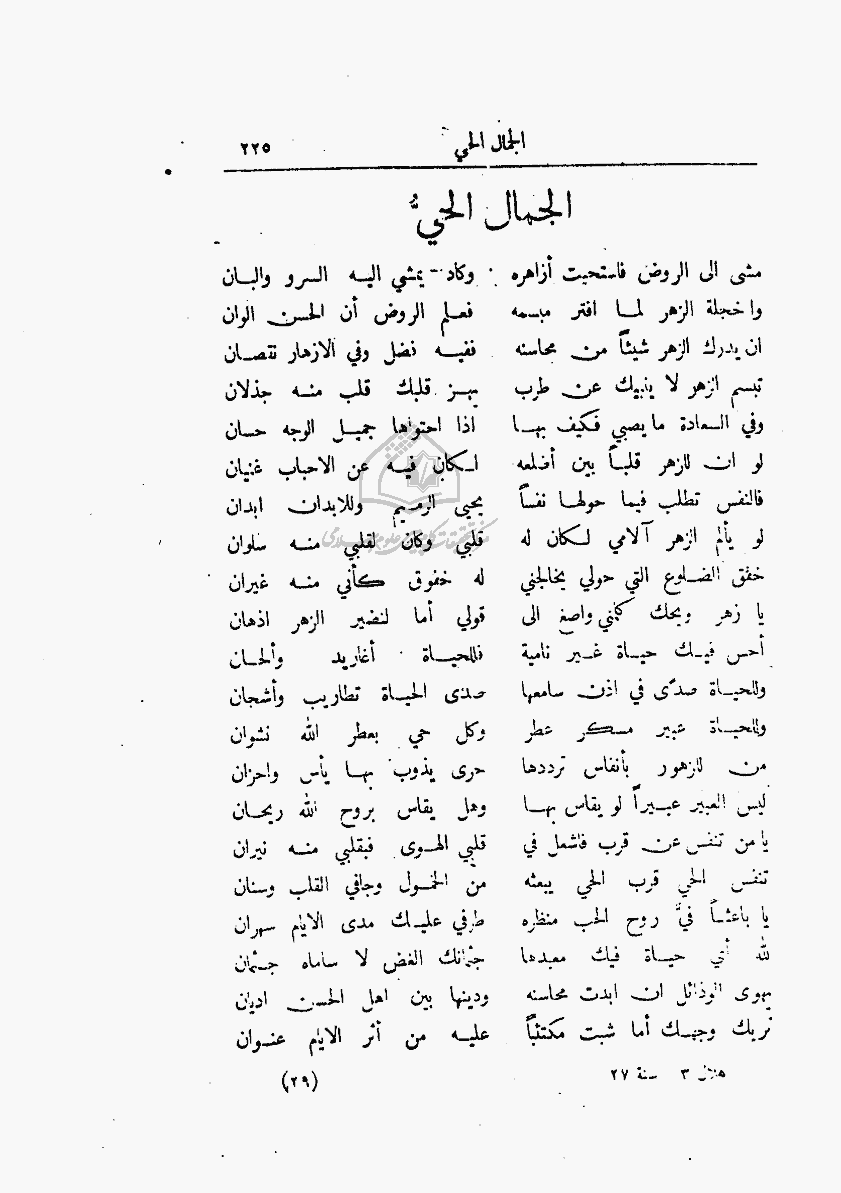 الجمال الحي ٢٢٥
الجمال الحيُّ
مشى الى الروض فاستحيت أزاهره وكاد يمشي اليه السرو والبان
واخجلة الزهر لما افتر مبسمه فعلم الروض أن الحسن الوان
ان يدرك الزهر شيئاً من محاسنه ففيه فضل وفي الازهار نقصان
تبسم الزهر لا ينبيك عن طرب يهز قلبك قلب منه جذلان
وفي السعادة ما يصبي فكيف بها اذا احتواها جميل الوجه حسان
لو ان للزهر قلباً بين أضلعه لكان فيه عن الاحباب غنيان
فالنفس تطلب فيما حولها نفساً يحيى الرميم وللابدان ابدان
لو يألم الزهر آلامي لكان له قلبي وكان لقلبي منه سلوان
خفق الضلوع التي حولي يخالجني له خفوق كأني منه غيران
يا زهر ويحك كلمني واصغ الى قولي أما لنضير الزهر اذهان
أحس فيك حياة غير نامية فللحياة أغاريد وألحان
وللحياة صدًى في اذن سامعها صدى الحياة تطاريب وأشجان
وللحياة عبير مسكر عطر وكل حي بعطر الله نشوان
من للزهور بأنفاس ترددها حرى يذوب بها يأس واحزان
ليس العبير عبيراً لو يقاس بها وهل يقاس بروح الله ريحان
يا من تنفس عن قرب فاشعل في قلبي الهوى فبقلبي منه نيران
تنفس الحي قرب الحي يبعثه من الخمول وجافي القلب وسنان
يا باعثاً فيَّ روح الحب منظره طرفي عليك مدى الايام سهران
لله أي حياة فيك معبدها جثمانك الغض لا ساماه جثمان
يهوى الوذائل ان ابدت محاسنه ودينها بين اهل الحسن اديان
تريك وجهك أما شبت مكتئباً عليه من أثر الايام عنوان
هلال ٣ سنة ٢٧ (٢٩)